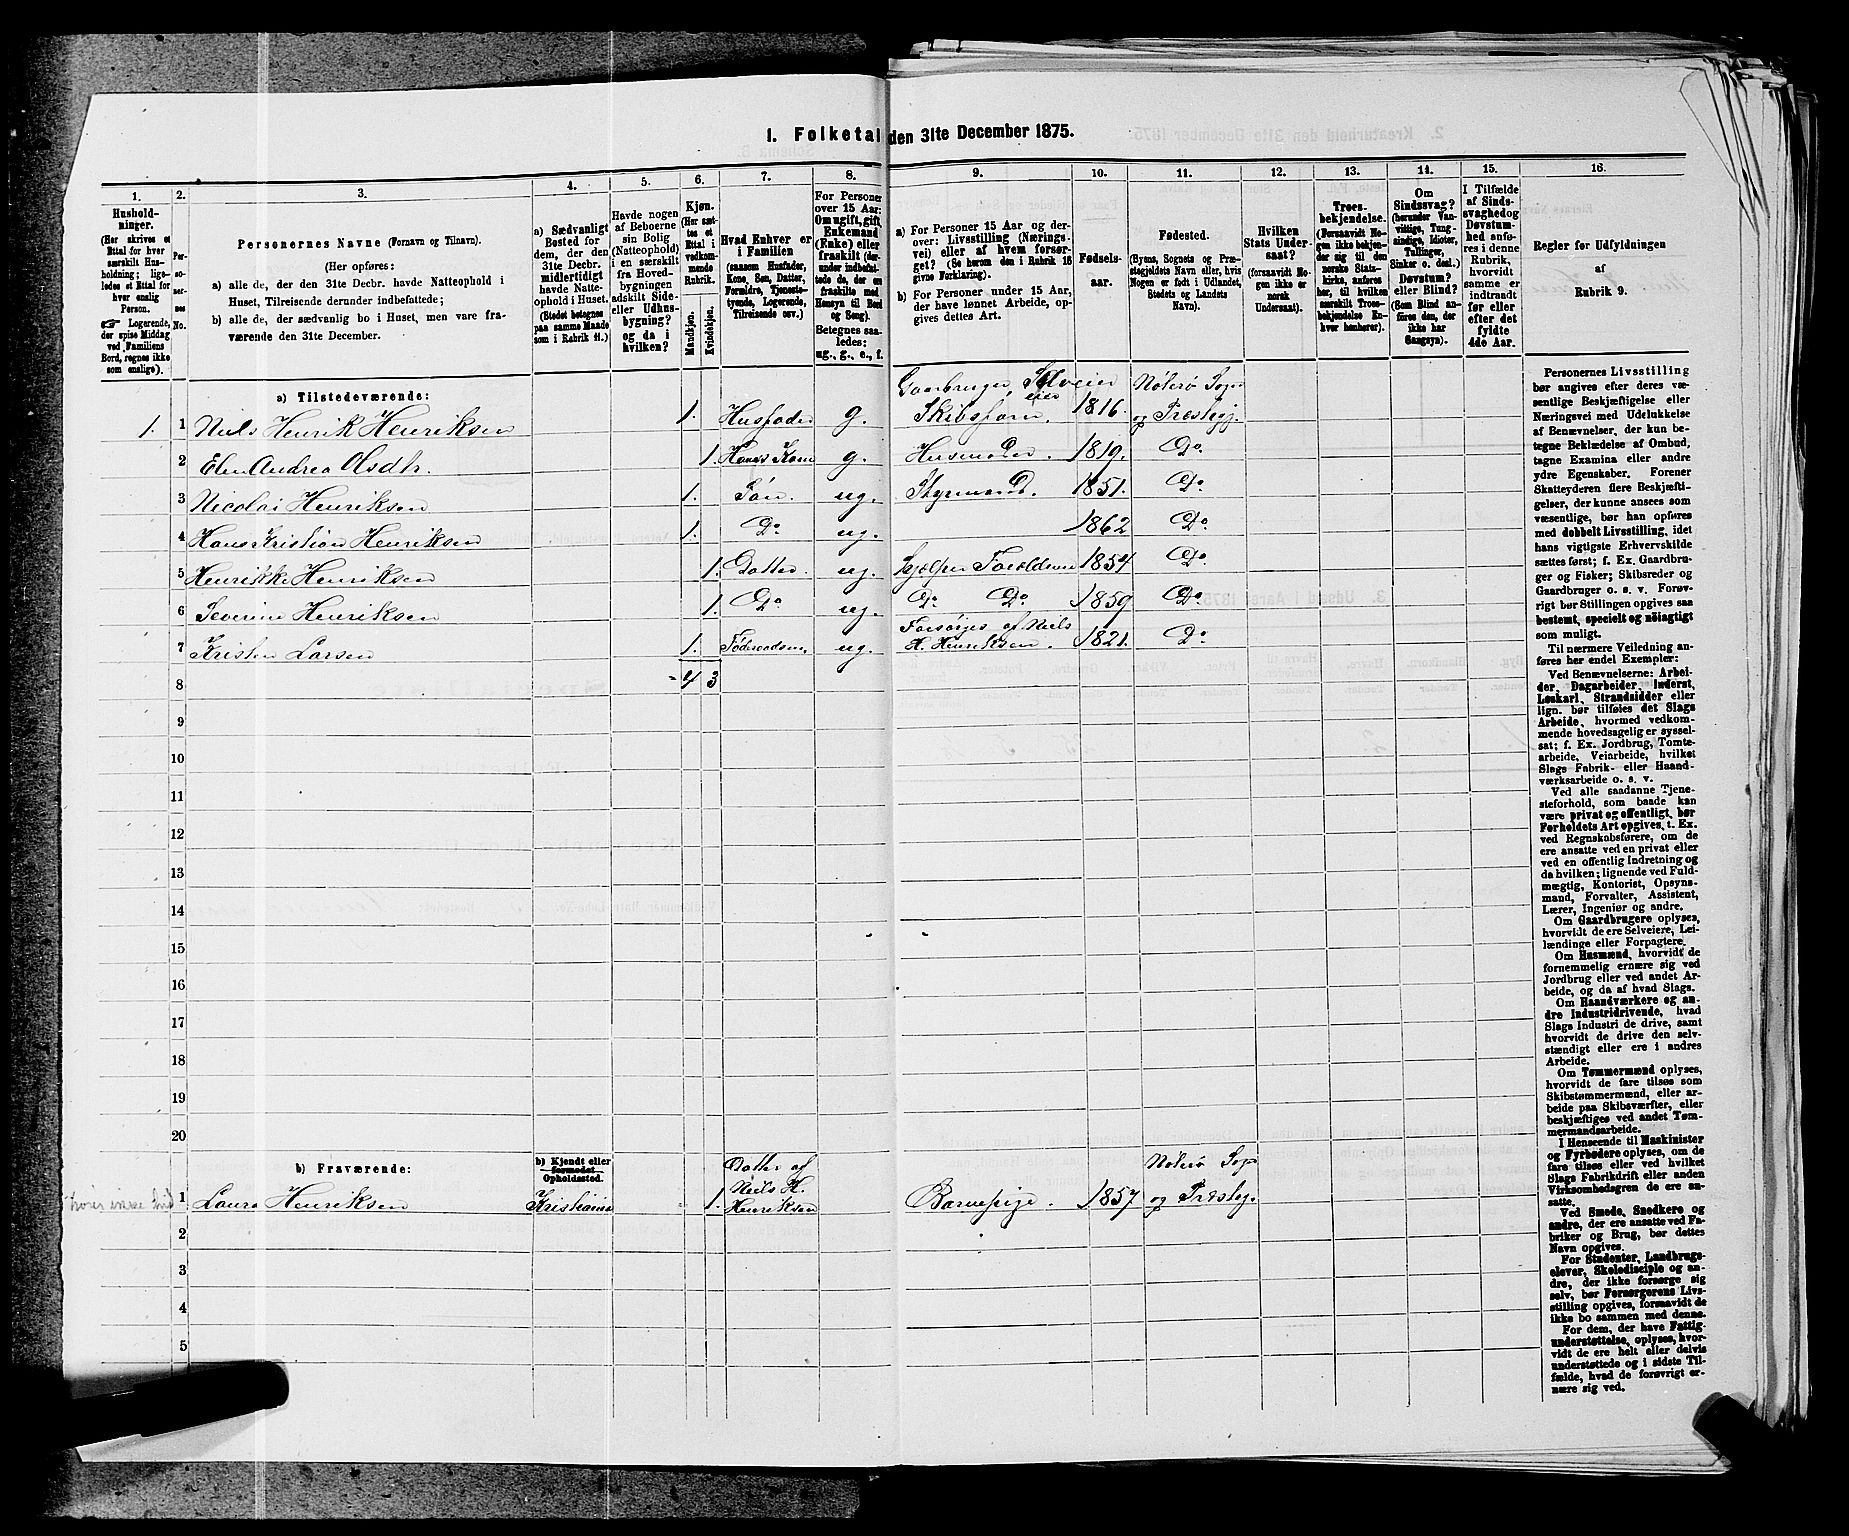 1. Folketal den 31te December 1875.
1. 2. 3. 4. 5. 6. 7. 8. 9. 10. 11. 12. 13. 14. 15. 16.
Hushold-
ninger.
(Her skrives et
Ettal for hver
særskilt Hus-
holdning; lige-
ledes et Ettal for
hver enslig
Person.
☞ Logerende,
der spise Middag
ved Familiens
Bord, regnes ikke
som enslige).
Per-
so-
ner-
nes
No.
Personernes Navne (Fornavn og Tilnavn).
(Her opføres:
a) alle de, der den 31te Decbr. havde Natteophold i
Huset, Tilreisende derunder indbefattede;
b) alle de, der sædvanlig bo i Huset, men vare fra-
værende den 31te December.
a) Sædvanligt
Bosted for
dem, der den
31te Decbr.
midlertidigt
havde Natte-
ophold i Huset.
(Stedet betegnes
paa samme Maade
som i Rubrik 11.)
Havde nogen
af Beboerne
sin Bolig
(Natteophold)
i en særskilt
fra Hoved-
bygningen
adskilt Side-
eller Udhus-
bygning?
og da i
hvilken?
Kjøn.
(Her sæt-
tes et
Ettal i
vedkom-
mende
Rubrik.
Mandkjøn.
Kvindekjøn.
Hvad Enhver er
i Familien
(saasom Husfader,
Kone, Søn, Datter,
Forældre, Tjeneste-
tyende, Logerende,
Tilreisende osv.)
For Personer
over 15 Aar:
Om ugift, gift
Enkemand
(Enke) eller
fraskilt (der-
under indbefat-
tede de, der ere
fraskilte med
Hensyn til Bord
og Seng).
Betegnes saa-
ledes:
ug., g., e., f.
a) For Personer 15 Aar og der-
over: Livsstilling (Nærings-
vei) eller af hvem forsør-
get? (Se herom den i Rubrik 16
givne Forklaring).
b) For Personer under 15 Aar,
der have lønnet Arbeide, op-
gives dettes Art.
Fødsels-
aar.
Fødested.
(Byens, Sognets og Præ-
stegjeldets Navn eller, hvis
Nogen er født i Udlandet,
Stedets og Landets
Navn).
Hvilken
Stats Under-
saat?
(forsaavidt No-
gen ikke er
norsk
Undersaat).
Troes-
bekjendelse.
(Forsaavidt No-
gen ikke bekjen-
der sig til den
norske Stats-
kirke, anføres
her, til hvilken
særskilt Troes-
bekjendelse En-
hver henhører).
Om
Sindssvag?
(herunder Van-
vittige, Tung-
sindige, Idioter,
Tullinger,
Sinker o. desl.)
Døvstum?
eller Blind?
(Som Blind an-
føres den, der
ikke har
Gangsyn).
I Tilfælde
af Sinds-
svaghed og
Døvstum-
hed anfø-
res i denne
Rubrik,
hvorvidt
samme er
indtraadt
før eller
efter det
fyldte
4de Aar.
Regler for Udfyldningen
af
Rubrik 9.
a) Tilstedeværende:
1. 1 Niels Henrik Henriksen 1. Husfader g. Gaardbruger, Selveier Skibsfører. 1816. Nøterø Sogn og Præstegj.
2 Elen Andrea Olsdtr. 1. Hans Kone g. Husmoder. 1819. Do
3 Nicolai Henriksen 1. Søn. ug. Styrmand. 1851. Do
4 Hans Kristian Henriksen 1. Do ug. 1862 Do
5 Henrikke Henriksen 1. Datter. ug. Hjelper Forældrene 1854 Do
6 Severine Henriksen 1. Do ug. Do Do 1859 Do
7 Kristen Larsen 1. Føderaadsm. ug. Forsørges af Niels H. Henriksen. 1821. Do
8 4 3
9
10
11
12
13
14
15
16
17
18
19
20
b) Fraværende:
b) Kjendt eller
formodet
Opholdssted.
1 Laura Henriksen Kristiania 1. Datter af Niels H. Henriksen Barnepige. 1857 Nøterø Sogn og Præsteg.
2
3
4
5
Personernes Livsstilling
bør angives efter deres væ-
sentlige Beskjæftigelse eller
Næringsvei med Udelukkelse
af Benævnelser, der kun be-
tegne Beklædelse af Ombud,
tagne Examina eller andre
ydre Egenskaber. Forener
Skatteyderen flere Beskjæfti-
gelser, der kunne ansees som
væsentlige, bør han opføres
med dobbelt Livsstilling, idet
hans vigtigste Erhvervskilde
sættes først; f. Ex. Gaardbru-
ger og Fisker; Skibsreder og
Gaardbruger o. s. v. Forøv-
rigt bør Stillingen opgives saa
bestemt, specielt og nøiagtigt
som muligt.
Til nærmere Veiledning an-
føres her endel Exempler:
Ved Benævnelserne: Arbei-
der, Dagarbeider, Inderst,
Løskarl, Strandsidder eller
lign. bør tilføies det Slags
Arbeide, hvormed vedkom-
mende hovedsagelig er syssel-
sat; f. Ex. Jordbrug, Tomte-
arbeide, Veiarbeide, hvilket
Slags Fabrik- eller Haand-
værksarbeide o. s. v.
Ved alle saadanne Tjene-
steforhold, som baade kan
være privat og offentligt, bør
Forholdets Art opgives, t. Ex.
ved Regnskabsførere, om de
ere ansatte ved en privat eller
ved en offentlig Indretning og
da hvilken; lignende ved Fuld-
mægtig, Kontorist, Opsyns-
mand, Forvalter, Assistent,
Lærer, Ingeniør og andre.
Om Gaardbrugere oplyses,
hvorvidt de ere Selveiere, Lei-
lændinge eller Forpagtere.
Om Husmænd, hvorvidt de
fornemmelig ernære sig ved
Jordbrug eller ved andet Ar-
beide, og da af hvad Slags.
Om Haandværkere og an-
dre Industridrivende, hvad
Slags Industri de drive, samt
hvorvidt de drive den selv-
stændigt eller ere i andres
Arbeide.
Om Tømmermænd oplyses,
hvorvidt de fare tilsøs som
Skibstømmermænd, eller ar-
beide paa Skibsværfter, eller
beskjæftiges ved andet Tøm-
mermandsarbeide.
I Henseende til Maskinister
og Fyrbødere oplyses, om de
fare tilsøs eller ved hvilket
Slags Fabrikdrift eller anden
Virksomhedsgren de ere an-
satte.
Ved Smede, Snedkere og
andre, der ere ansatte ved Fa-
briker og Brug, bør dettes
Navn opgives.
For Studenter, Landbrugs-
elever, Skoledisciple og an-
dre, der ikke forsørge sig
selv, bør Forsørgerens Livs-
stilling opgives, forsaavidt de
ikke bo sammen med denne.
For dem, der have Fattig-
understøttelse, oplyses, hvor-
vidt de ere helt eller delvis
understøttede og i sidste Til-
fælde, hvad de forøvrigt er-
nære sig ved.